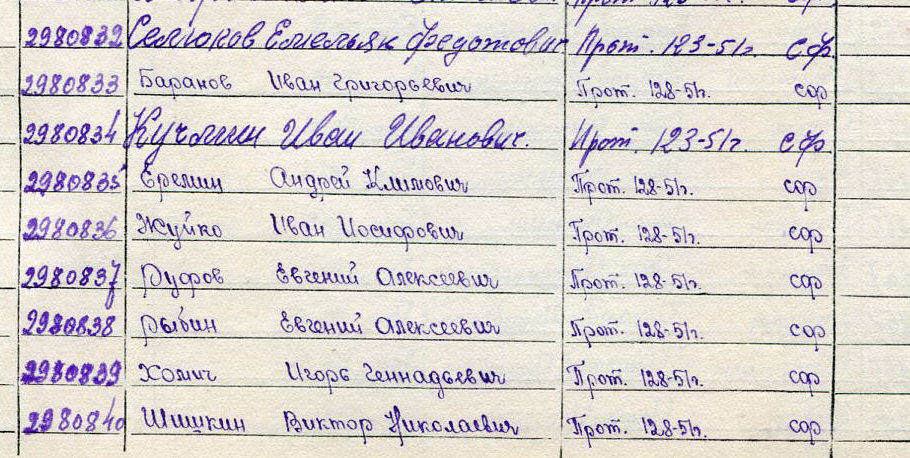 2980832 Селюков Емельян Федотович Прот. 123-51г. СФ.
2980833 Баранов Иван Григорьевич Прот. 128-51г. сф
2980834 Кучмин Иван Иванович. Прот. 123-51г. СФ
2980835 Еремин Андрей Климович Прот. 128-51г. сф
2980836 Жуйко Иван Иосифович Прот. 128-51г. сф
2980837 Руфов Евгений Алексеевич Прот. 128-51г. сф
2980838 Рыбин Евгений Алексеевич Прот. 128-51г. сф
2980839 Хомич Игорь Геннадьевич Прот. 128-51г. сф
2980840 Шишкин Виктор Николаевич Прот. 128-51г. сф